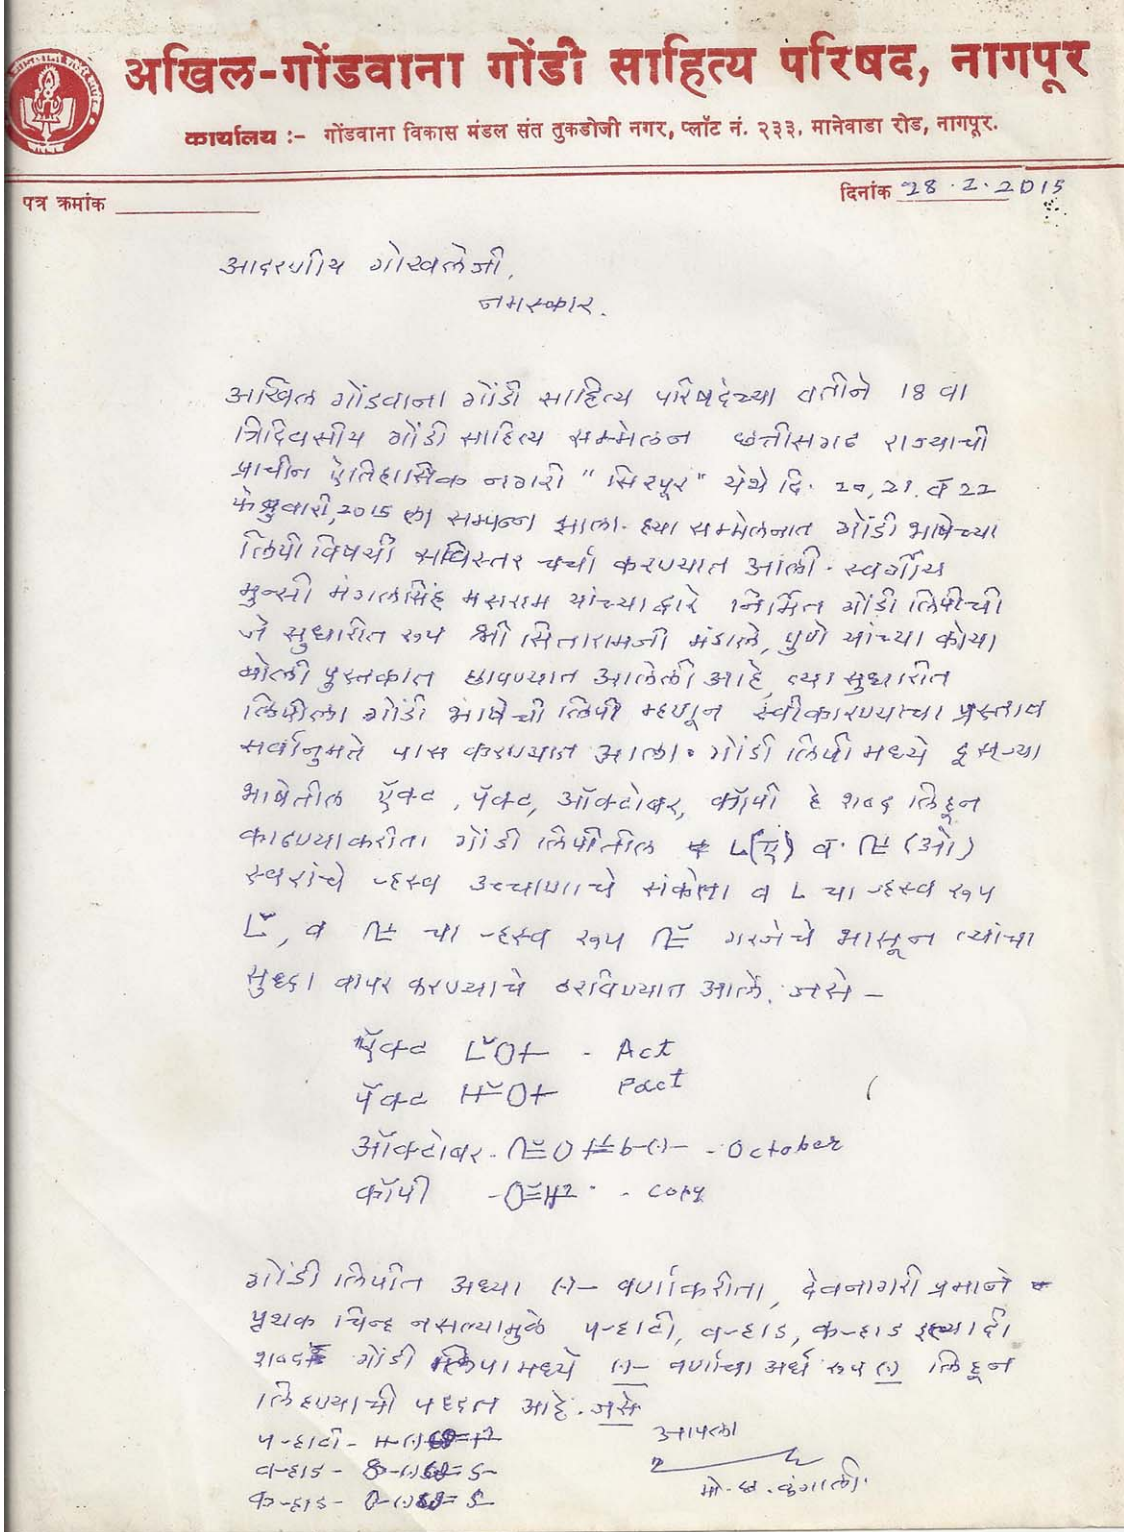 अखिल-गोंडवाना गोंडी साहित्य परिषद, नागपूर
कार्यालय :- गोंडवाना विकास मंडल संत तुकडोजी नगर, प्लॉट नं. २३३, मानेवाडा रोड, नागपूर.
पत्र क्रमांक
दिनांक 28.2.2015
आदरणीय गोखलेजी,
नमस्कार.
अखिल गोंडवाना गोंडी साहित्य परिषदेच्या वतीने 18 वा
त्रिदिवसीय गोंडी साहित्य सम्मेलन छत्तीसगढ राज्याची
प्राचीन ऐतिहासिक नगरी "सिरपूर" येथे दि. 20, 21. व 22
फेब्रुवारी, 2015 ला सम्पन्न झाला. ह्या सम्मेलनात गोंडी भाषेच्या
लिपी विषयी सविस्तर चर्चा करण्यात आली. स्वर्गीय
मुन्सी मंगलसिंह मसराम यांच्या द्वारे निर्मित गोंडी लिपीची
जे सुधारीत रूप श्री सितारामजी मंडाले, पुणे यांच्या कोया
बोली पुस्तकात छापण्यात आलेली आहे, त्या सुधारीत
लिपीला गोंडी भाषेची लिपी म्हणून स्वीकारण्याचा प्रस्ताव
सर्वानुमते पास करण्यात आला. गोंडी लिपी मध्ये दूसऱ्या
भाषेतील ऍक्ट, पॅक्ट, ऑक्टोबर, कॉपी हे शब्द लिहून
काढण्याकरीता गोंडी लिपीतील (ए) व (ओ)
स्वरांचे ऱ्हस्व उच्चाणाचे संकेत व या ऱ्हस्व रूप
व चा ऱ्हस्व रूप गरजेचे भासून त्यांचा
सुध्दा वापर करण्याचे ठरविण्यात आले. जसे -
ऍक्ट - Act
पॅक्ट Pact
ऑक्टोबर - - October
कॉपी - copy
गोंडी लिपीत अध्या वर्णाकरीता, देवनागरी प्रमाने
पृथक चिन्ह नसल्यामुळे पऱ्हाटी, वऱ्हाड, कऱ्हाड इत्यादी
शब्द गोंडी लिपी मध्ये वर्णाचा अर्ध रूप लिहून
लिहण्याची पध्दत आहे. जसे
पऱ्हाटी -
वऱ्हाड -
कऱ्हाड -
आपला
मो. छ. कुंगाली.